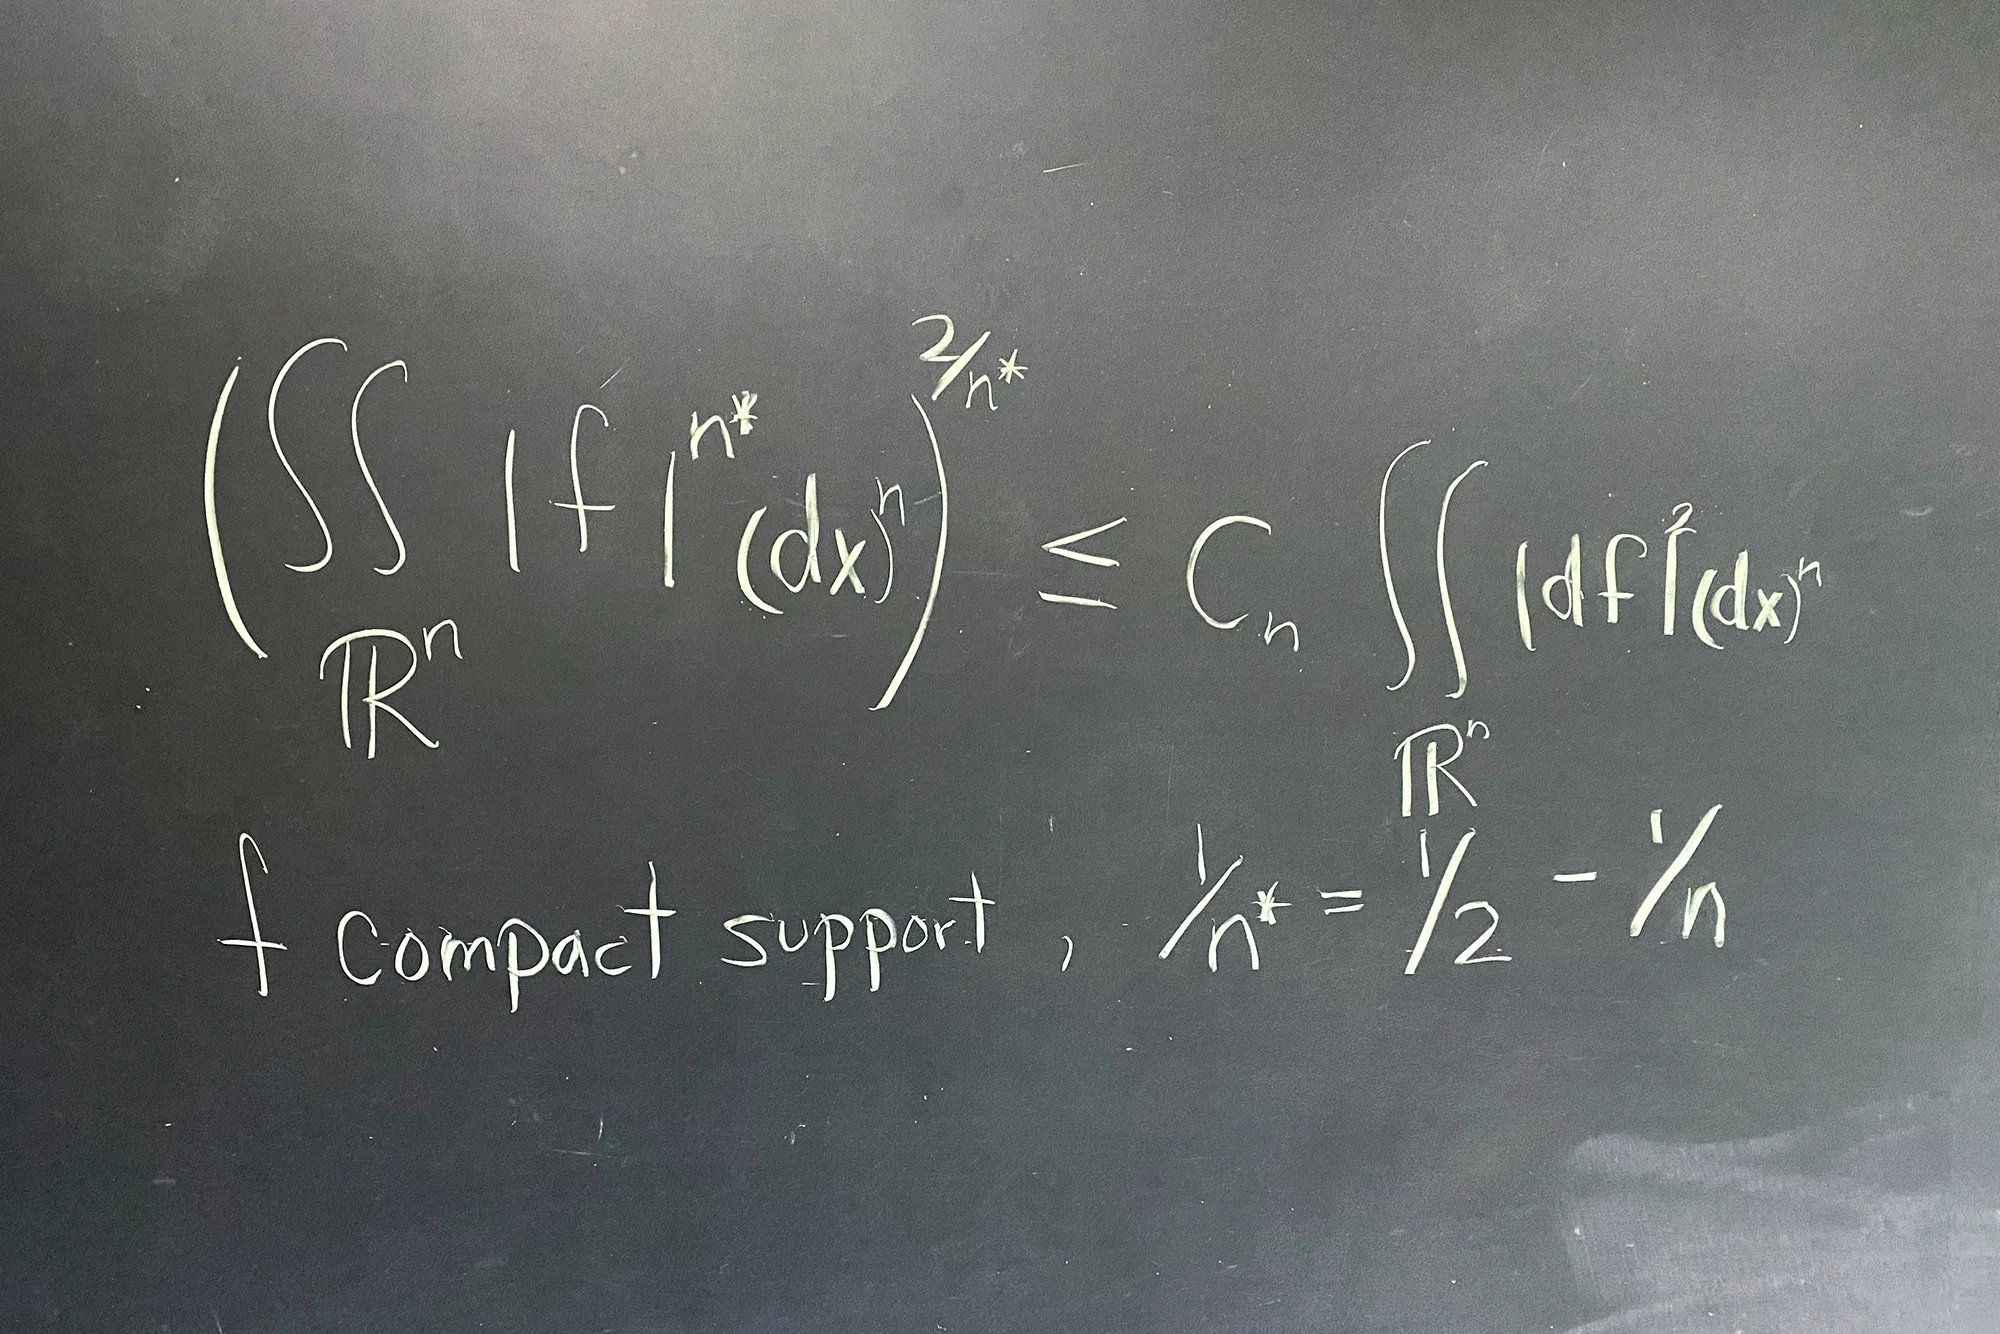 (∬_{ℝⁿ} |f|^{n*} (dx)ⁿ)^{2/n*} ≤ Cₙ ∬_{ℝⁿ} |df|² (dx)ⁿ
f compact support, 1/n* = 1/2 - 1/n